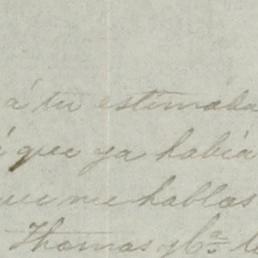 á tu estimada
que ya había
que me hablas
Thomas y